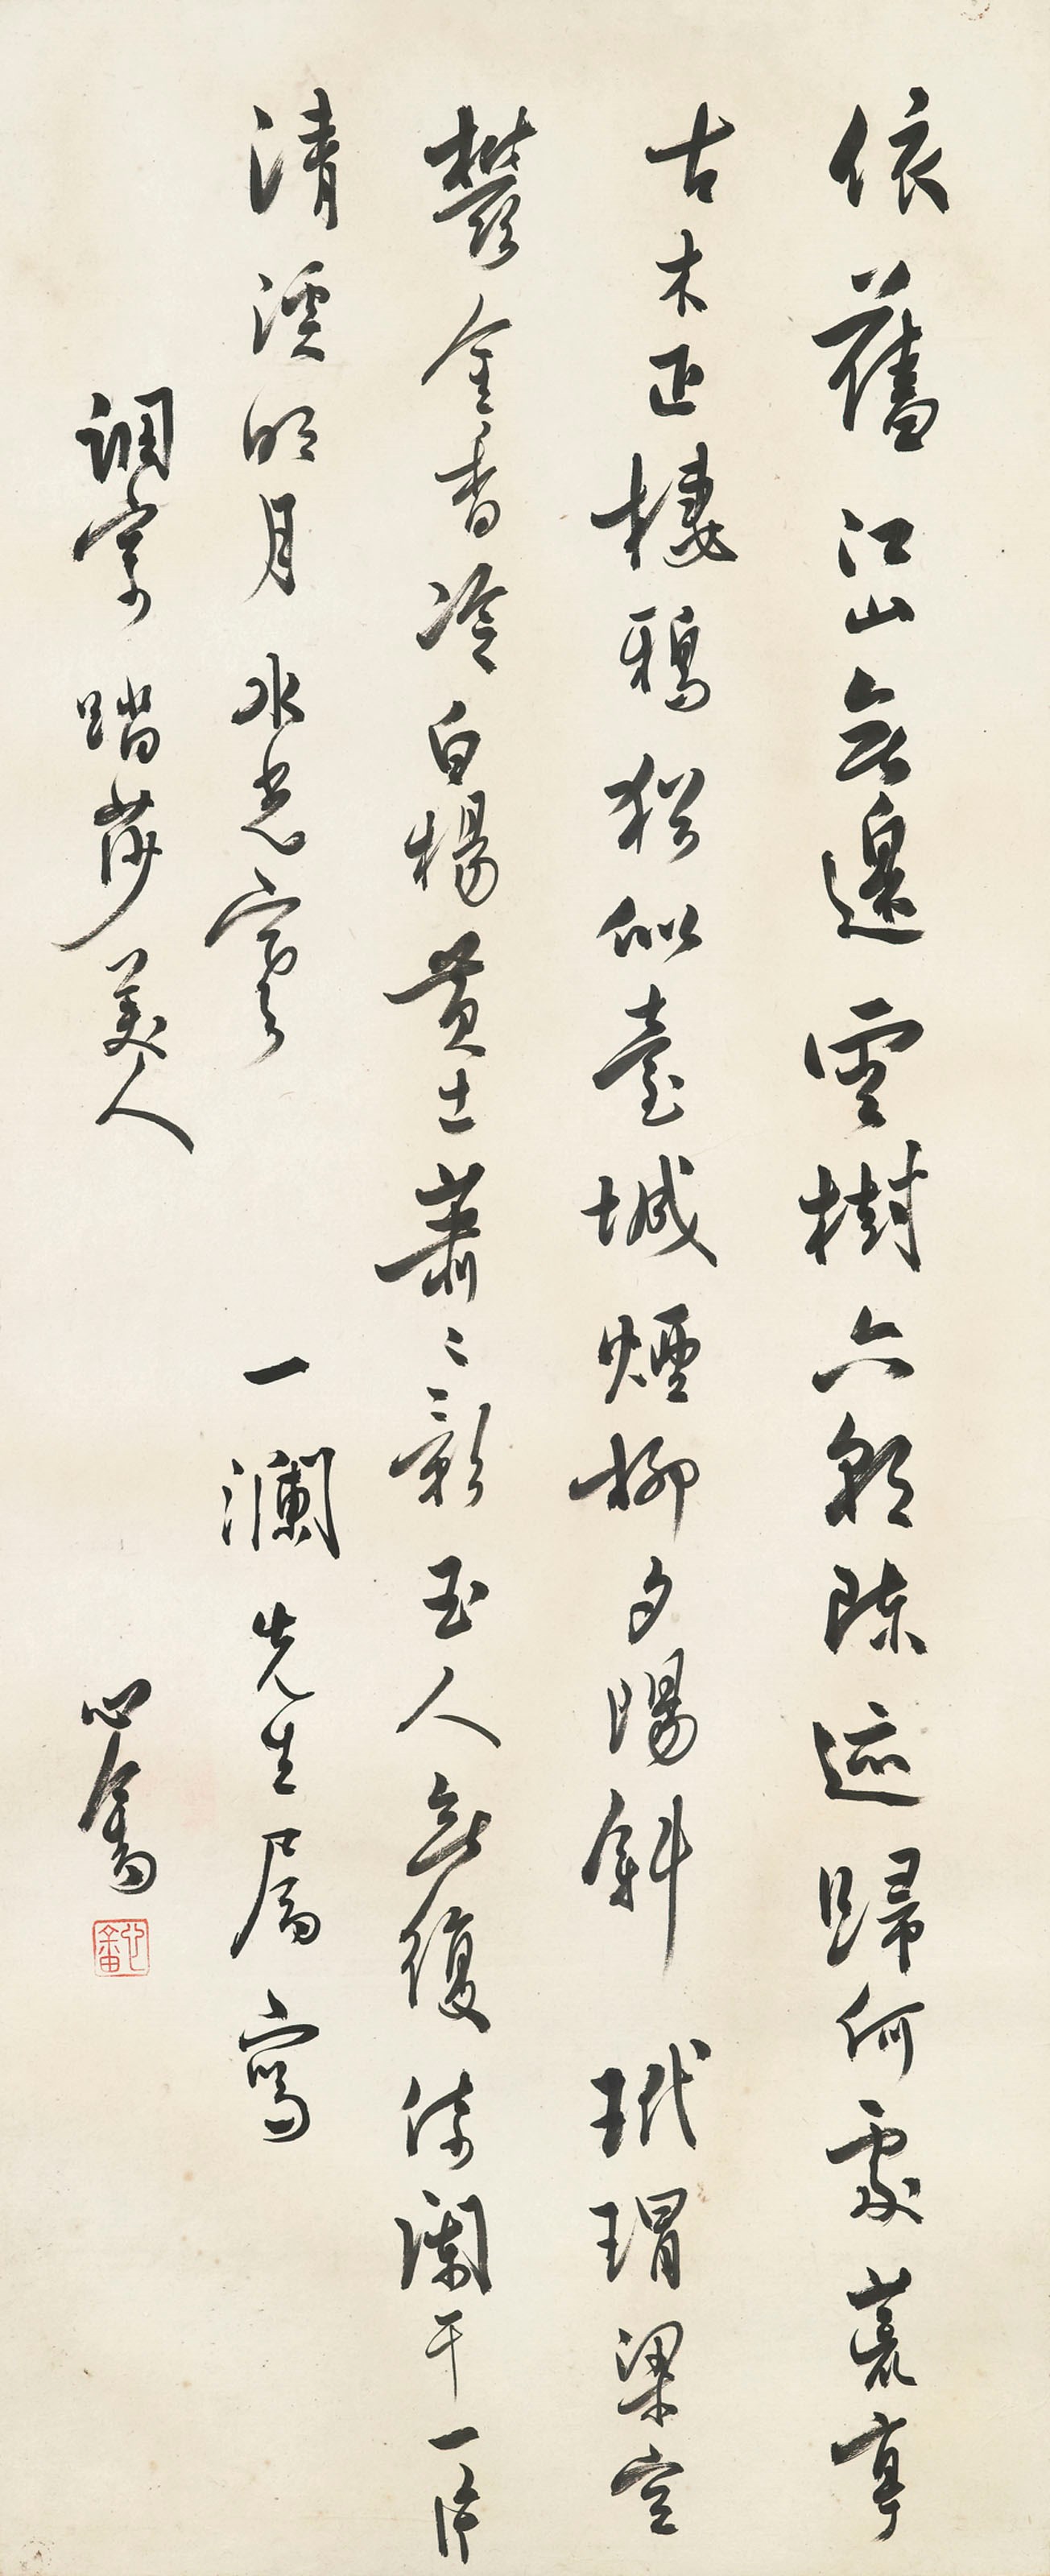 依舊江山無邊雲樹六朝陳迹歸何處荒亭
古木正棲鴉猶似臺城煙柳夕陽斜　玳瑁梁空
鬱金香冷白楊黃土蕭〻影玉人無復倚闌干一片
清溪明月水光寒　一瀾先生屬寫
調寄踏莎美人　心畬